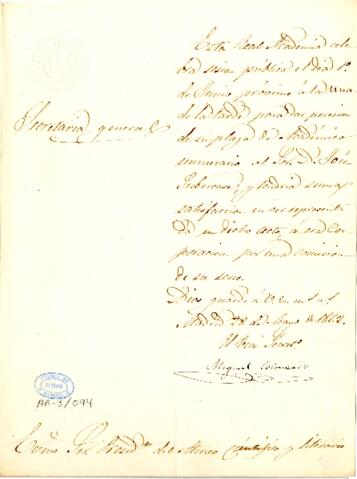 Secretaría general
Esta Real Academia cele
bra sesion publica el dia 1º
de Junio próximo á la una
de la tarde para dar posesion
de su plaza de Académico
numerario al Sor. D. José
y tendria suma
satisfaccion en ver representa
da en dicho acto, á esa Cor
poracion por una comision
de su seno.
Dios guarde á V.E. m.s a.s
Madrid 28 de Mayo de
El
Miguel Colmeiro
AR-3/094
Exmo Sor. Presid.te del Ateneo Científico y literario